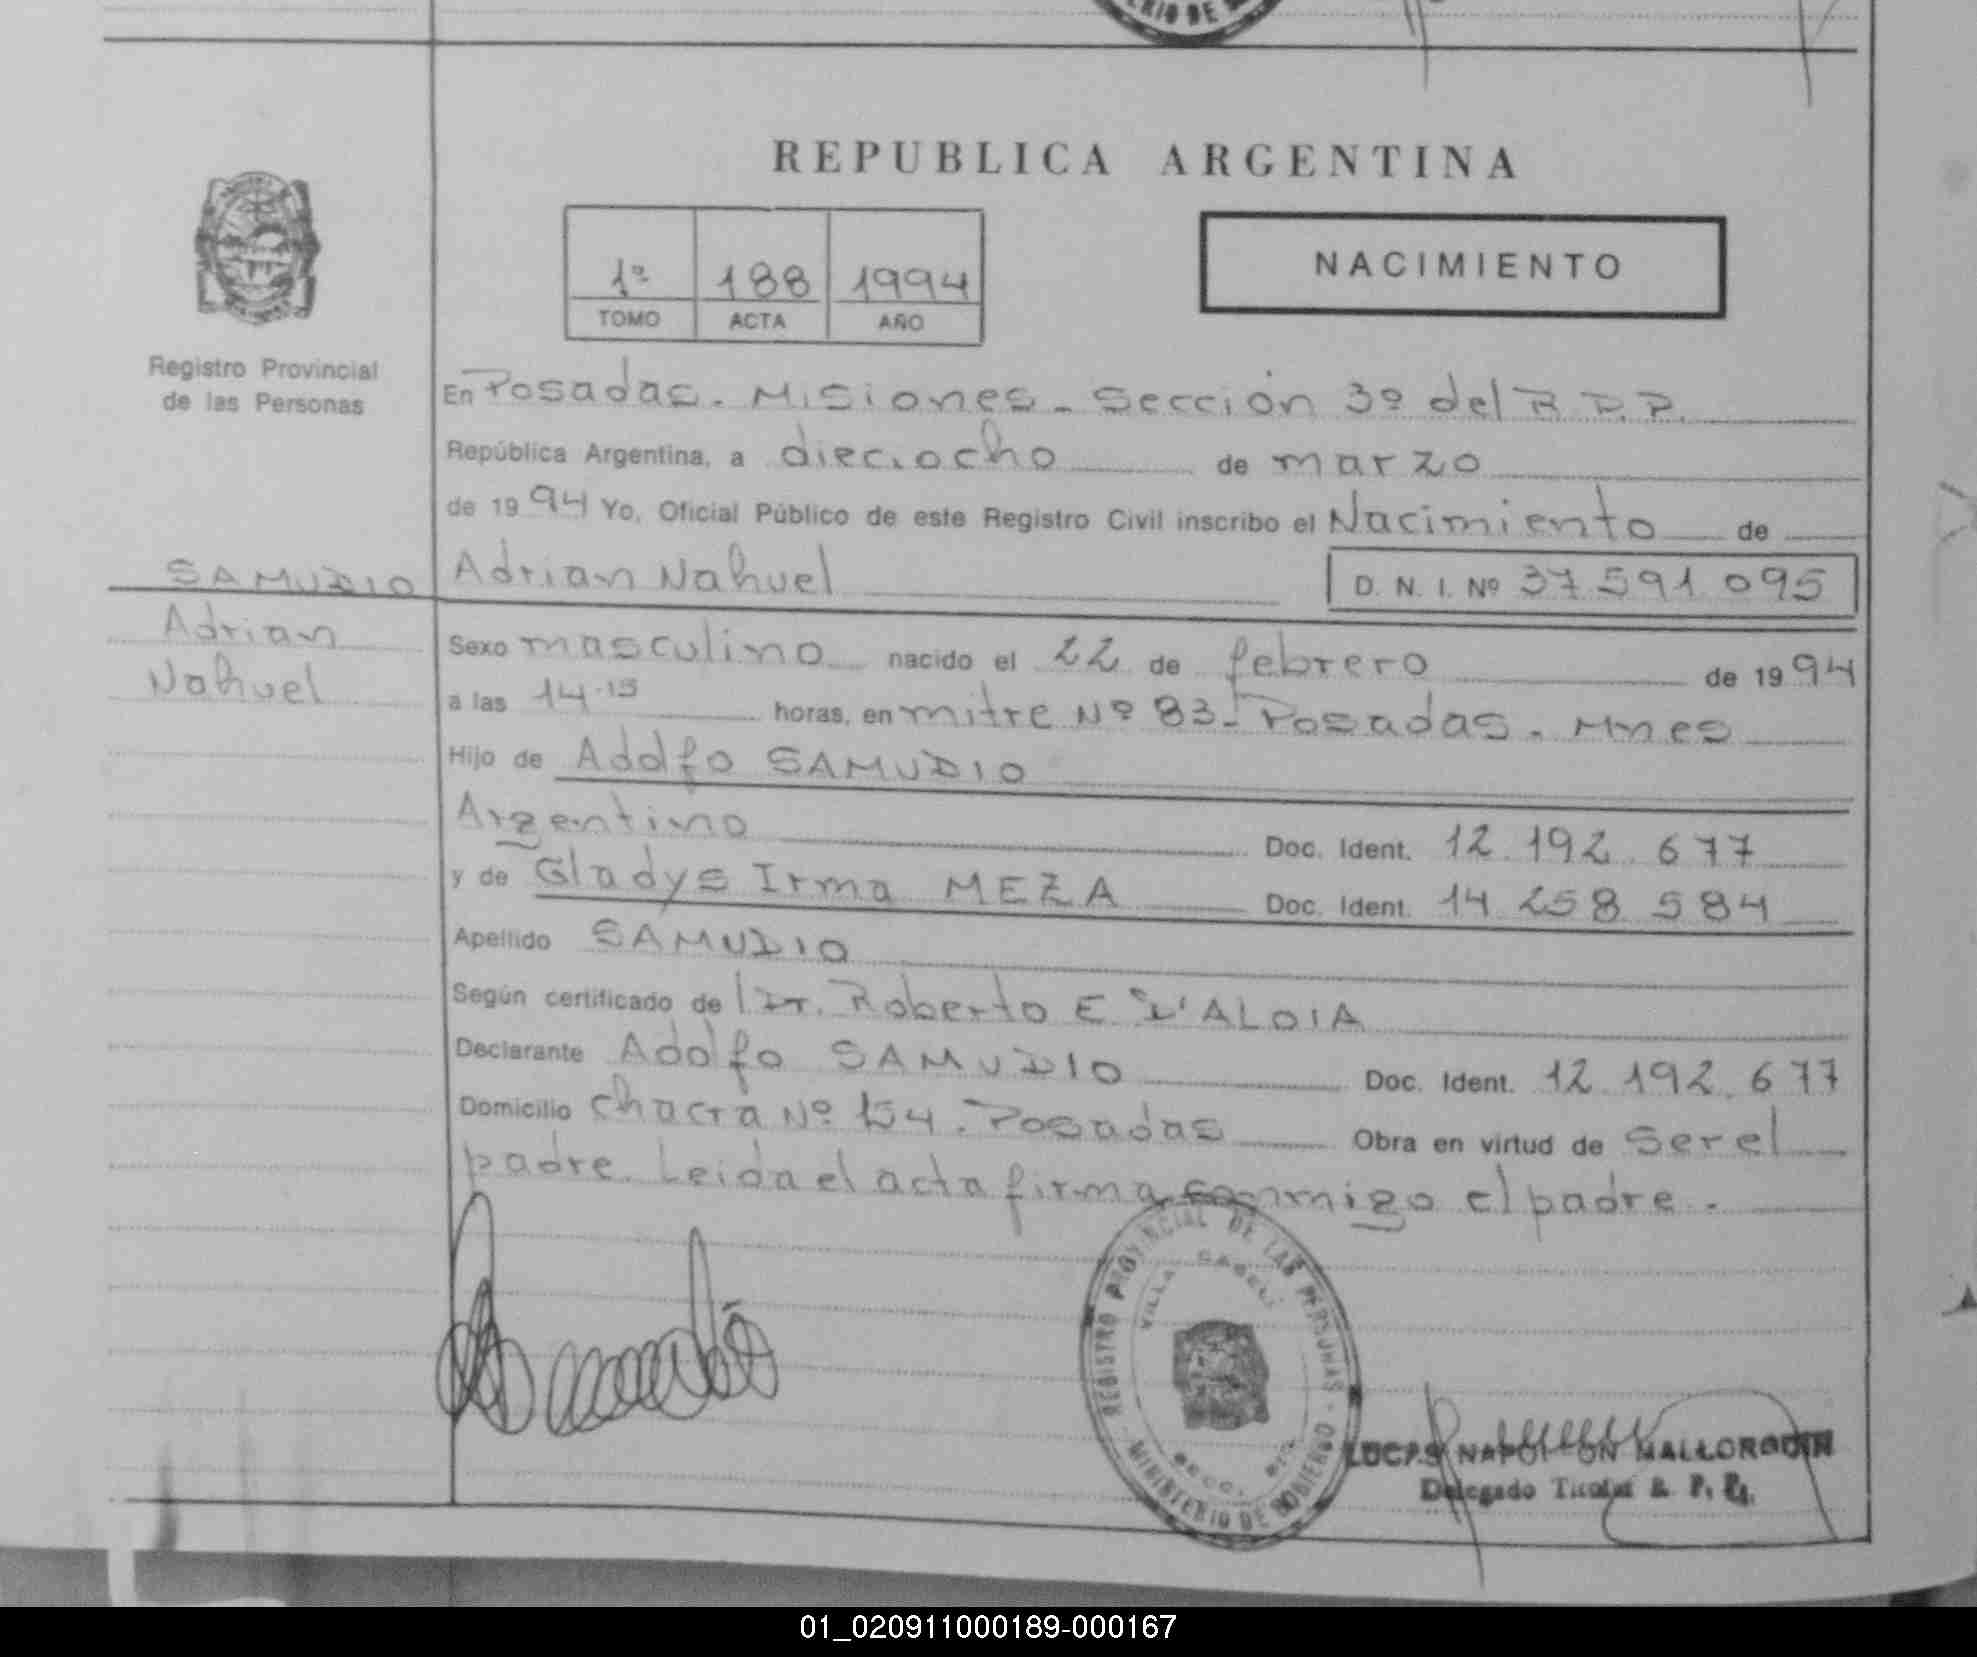 REPUBLICA ARGENTINA
1º 188 1994
TOMO ACTA AÑO
NACIMIENTO
Registro Provincial
de las Personas
En Posadas. Misiones. Sección 3º del R.P.P.
República Argentina, a dieciocho de marzo
de 1994 Yo, Oficial Público de este Registro Civil inscribo el Nacimiento de
SAMUDIO
Adrian
Nahuel
Adrian Nahuel D. N. I. Nº 37.591.095
Sexo masculino nacido el 22 de febrero de 1994
a las 14.15 horas, en mitre Nº 83- Posadas. Mnes
Hijo de Adolfo SAMUDIO
Argentino Doc. Ident. 12.192.677
y de Gladys Irma MEZA Doc. Ident. 14.258.584
Apellido SAMUDIO
Según certificado de l Dr. Roberto E D'ALOIA
Declarante Adolfo SAMUDIO Doc. Ident. 12.192.677
Domicilio Chacra Nº 154. Posadas Obra en virtud de ser el
padre. Leida el acta firma conmigo el padre.
REGISTRO PROVINCIAL DE LAS PERSONAS - MINISTERIO DE GOBIERNO -
VILLA CABELLO
LUCAS NAPOLEON MALLORQUIN
Delegado Titular R. P. P.
01_020911000189-000167